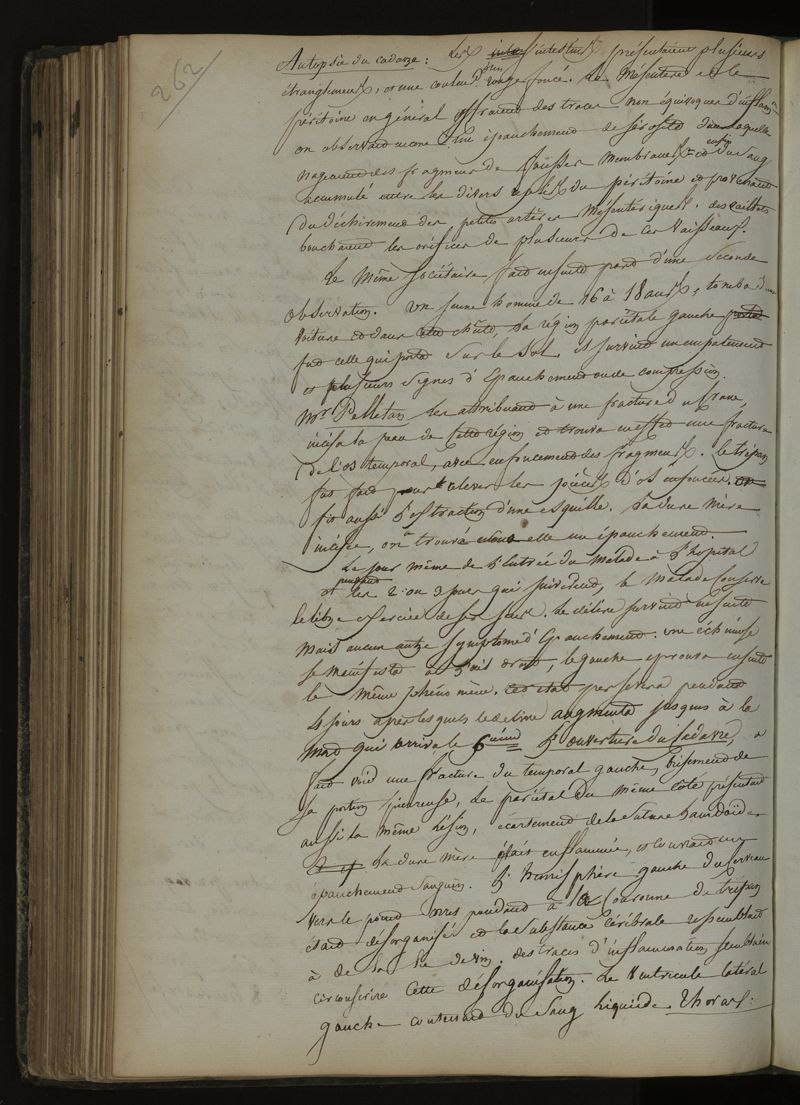 262
Autopsie du cadavre : Les intestins présentaient plusieurs
étranglements, et une couleur d'un rouge foncé. Le Mésentere et le
péritoine en général offraient des traces non équivoques d'inflamon
on observait encore un épanchement de sérosité dans laquelle
nageaient des fragmens de fausses membranes = et enfin du Sang
accumulé entre les divers replis du péritoine et provenant
du déchirement des petites artères Mésenteriques. des caillots
bouchaient les orifices de plusieurs de ces Vaisseaux.
Le Même Sociétaire fait ensuite part d'une Seconde
observation. Un jeune homme de 16 à 18 ans, tomba d'une
Voiture et dans cette chûte, la région pariétale gauche
fut celle qui porta Sur le Sol. il survint un empatement
et plusieurs Signes d'Epanchement ou de compression.
Mr Pelletan les attribuant à une fracture du crane,
incisa la peau de cette région et trouva en effet une fracture
de l'os temporal, avec enfoncement des fragmens. le trépan
fut fait pour élever les pièces d'os enfoncées. on
fit aussi l'extraction d'une esquille. La dure Mère
incisée, on trouva sous elle un épanchement.
Le jour même de l'entrée du Malade à l'hopital
et pendant les 2 ou 3 jours qui suivirent, le Malade conserve
le libre exercice de ses sens. Le délire survint ensuite
Mais aucun autre Symptome d'Epanchement. une échimose
se manifesta à l'œil droit, le gauche eprouva ensuite
le même phénomène. Cet état persévera pendant
4 jours après lesquels le délire augmenta jusques à la
Mort qui arriva le 6ieme L'ouverture du Cadavre, a
fait voir une fracture du temporal gauche, brisement de
sa portion pierreuse, Le pariétal du même côté présentait
aussi la même lésion, écartement de la Suture Lambdoïde
La dure Mère était enflammée, et couvrait un
épanchement Sanguin. L'hemisphère gauche du cerveau
vers le point correspondant à la Couronne de trépan
était désorganisé et la Substance Cérébrale ressemblait
à de la lie de vin. des traces d'inflammation semblaient
circonscrire cette désorganisation. Le Ventricule latéral
gauche contenait du Sang liquide. Thorax :